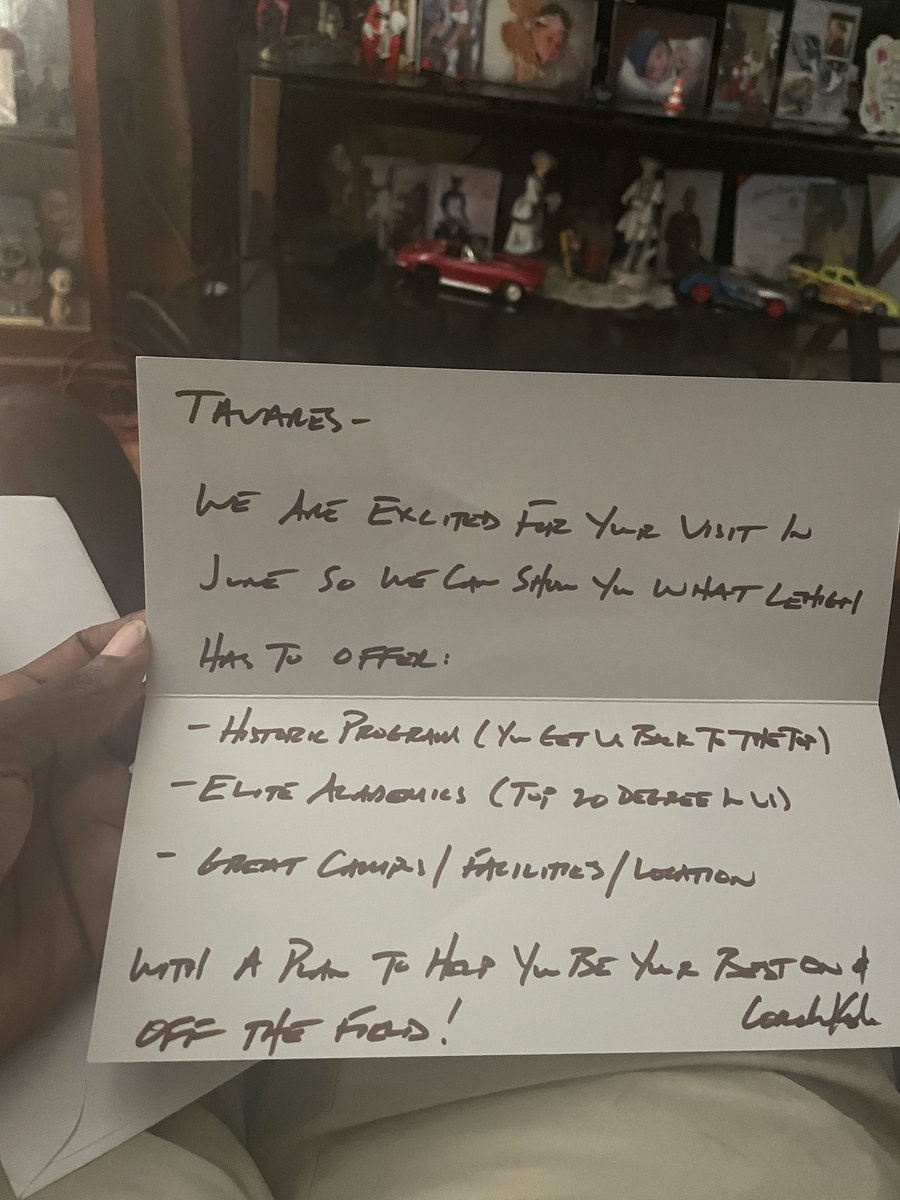 TAVARES-
WE ARE EXCITED FOR YOUR VISIT IN
JUNE SO WE CAN SHOW YOU WHAT LEHIGH
HAS TO OFFER:
- HISTORIC PROGRAM (YOU GET US BACK TO THE TOP)
- ELITE ACADEMICS (TOP 20 DEGREE IN US)
- GREAT CAMPUS/FACILITIES/LOCATION
WITH A PLAN TO HELP YOU BE YOUR BEST ON &
OFF THE FIELD!
Coach